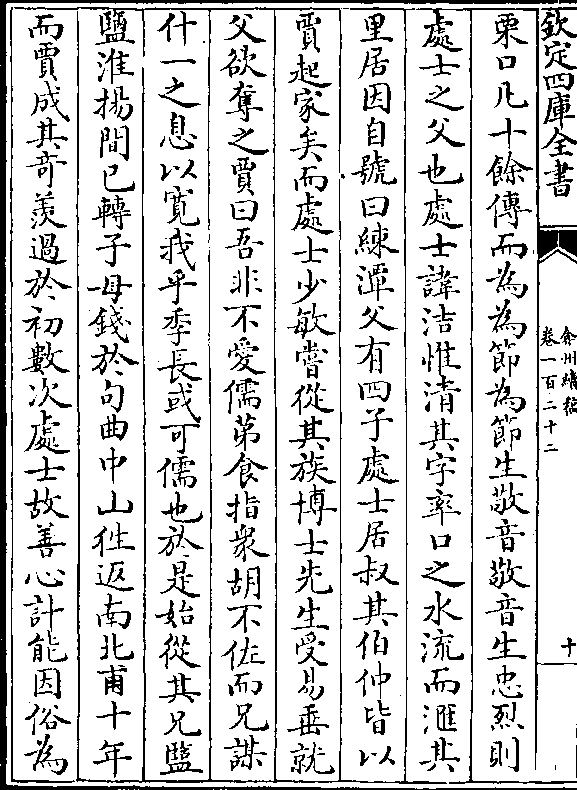 欽定四庫全書
弇州續稿
卷一百二十二
十
栗口凡十餘傳而為為節為節生敬音敬音生忠烈則
處士之父也處士諱洁惟清其字率口之水流而滙其
里居因自號曰練潭父有四子處士居叔其伯仲皆以
賈起家矣而處士少敏嘗從其族博士先生受易垂就
父欲奪之賈曰吾非不愛儒第食指衆胡不佐而兄謀
什一之息以寛我乎季長或可儒也於是始從其兄鹽
鹽淮揚間已轉子母錢於句曲中山徃返南北甫十年
而賈成其竒羨過於初數次處士故善心計能因俗為